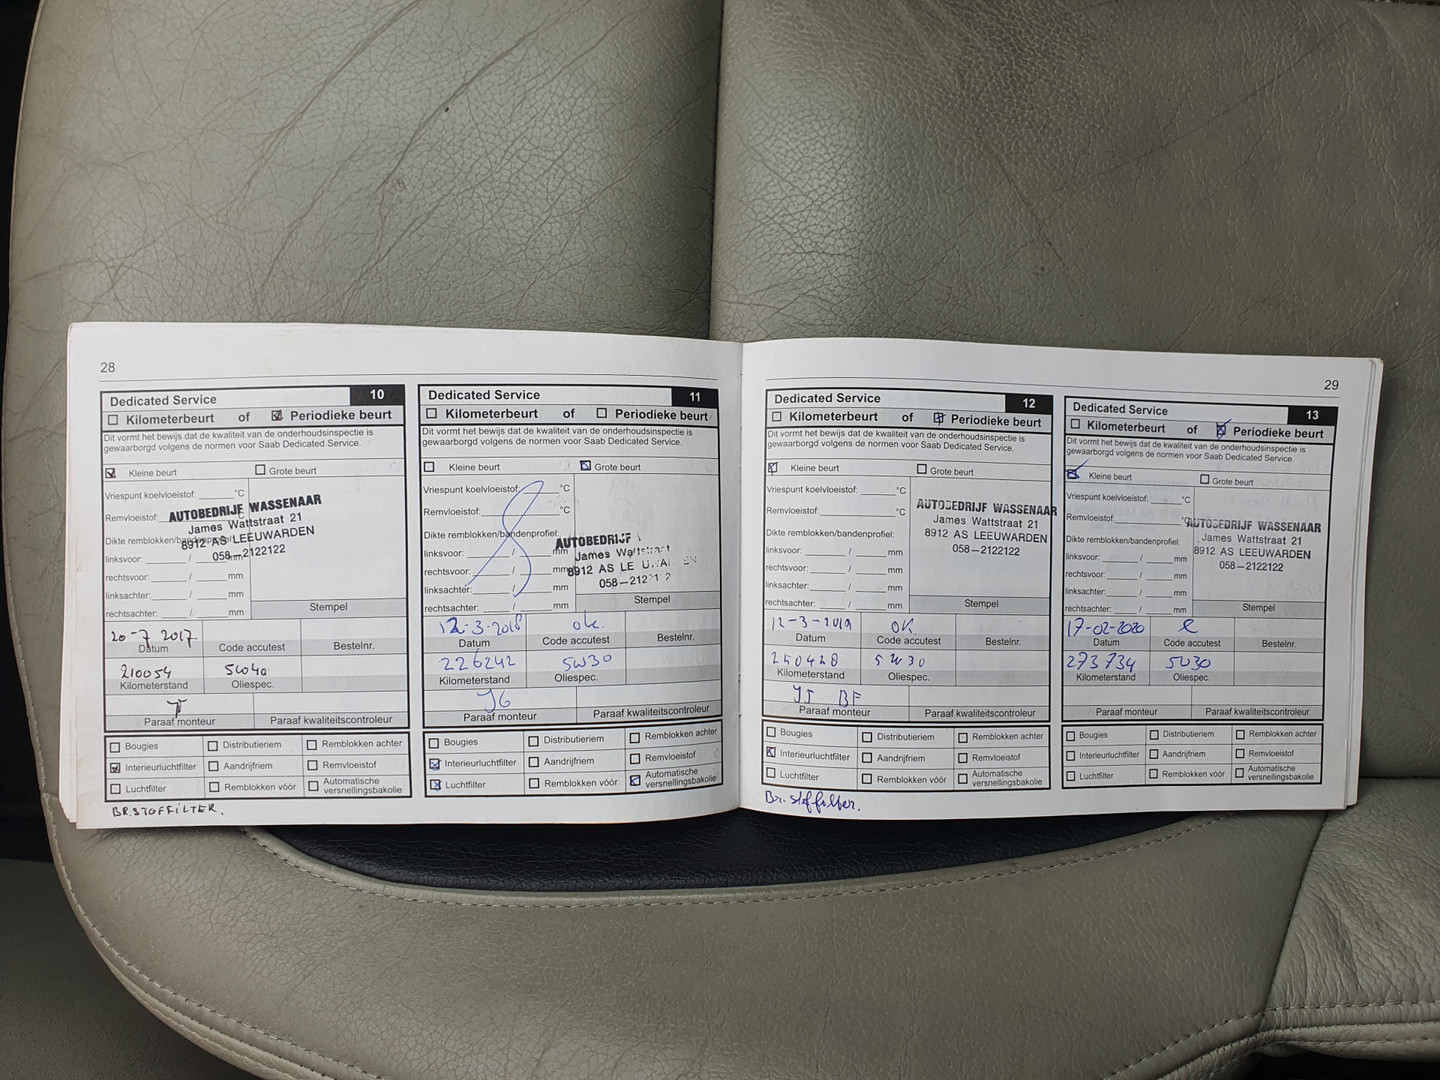 28
Dedicated Service 10
Kilometerbeurt of Periodieke beurt
Dit vormt het bewijs dat de kwaliteit van de onderhoudsinspectie is
gewaarborgd volgens de normen voor Saab Dedicated Service.
Kleine beurt Grote beurt
Vriespunt koelvloeistof: °C
Remvloeistof:
Dikte remblokken/bandenprofiel:
linksvoor: / mm
rechtsvoor: / mm
linksachter: / mm
rechtsachter: / mm
AUTOBEDRIJF WASSENAAR
James Wattstraat 21
8912 AS LEEUWARDEN
058-2122122
Stempel
20-7 2017
Datum Code accutest Bestelnr.
210054 5W40
Kilometerstand Oliespec.
Paraaf monteur Paraaf kwaliteitscontroleur
Bougies Distributieriem Remblokken achter
Interieurluchtfilter Aandrijfriem Remvloeistof
Luchtfilter Remblokken vóór Automatische versnellingsbakolie
BR.STOFFILTER.
Dedicated Service 11
Kilometerbeurt of Periodieke beurt
Dit vormt het bewijs dat de kwaliteit van de onderhoudsinspectie is
gewaarborgd volgens de normen voor Saab Dedicated Service.
Kleine beurt Grote beurt
Vriespunt koelvloeistof: °C
Remvloeistof: °C
Dikte remblokken/bandenprofiel:
linksvoor: / mm
rechtsvoor: / mm
linksachter: / mm
rechtsachter: / mm
AUTOBEDRIJF
James Wattstraat
8912 AS
058-2122
Stempel
12-3-2018 ok.
Datum Code accutest Bestelnr.
226242 5W30
Kilometerstand Oliespec.
JG
Paraaf monteur Paraaf kwaliteitscontroleur
Bougies Distributieriem Remblokken achter
Interieurluchtfilter Aandrijfriem Remvloeistof
Luchtfilter Remblokken vóór Automatische versnellingsbakolie
29
Dedicated Service 12
Kilometerbeurt of Periodieke beurt
Dit vormt het bewijs dat de kwaliteit van de onderhoudsinspectie is
gewaarborgd volgens de normen voor Saab Dedicated Service.
Kleine beurt Grote beurt
Vriespunt koelvloeistof: °C
Remvloeistof: °C
Dikte remblokken/bandenprofiel:
linksvoor: / mm
rechtsvoor: / mm
linksachter: / mm
rechtsachter: / mm
AUTOBEDRIJF WASSENAAR
James Wattstraat 21
8912 AS LEEUWARDEN
058-2122122
Stempel
12-3-2019 OK.
Datum Code accutest Bestelnr.
250428 5W30
Kilometerstand Oliespec.
BF
Paraaf monteur Paraaf kwaliteitscontroleur
Bougies Distributieriem Remblokken achter
Interieurluchtfilter Aandrijfriem Remvloeistof
Luchtfilter Remblokken vóór Automatische versnellingsbakolie
Br.stoffilter.
Dedicated Service 13
Kilometerbeurt of Periodieke beurt
Dit vormt het bewijs dat de kwaliteit van de onderhoudsinspectie is
gewaarborgd volgens de normen voor Saab Dedicated Service.
Kleine beurt Grote beurt
Vriespunt koelvloeistof: °C
Remvloeistof: °C
Dikte remblokken/bandenprofiel:
linksvoor: / mm
rechtsvoor: / mm
linksachter: / mm
rechtsachter: / mm
AUTOBEDRIJF WASSENAAR
James Wattstraat 21
8912 AS LEEUWARDEN
058-2122122
Stempel
17-02-2020
Datum Code accutest Bestelnr.
273734 5W30
Kilometerstand Oliespec.
Paraaf monteur Paraaf kwaliteitscontroleur
Bougies Distributieriem Remblokken achter
Interieurluchtfilter Aandrijfriem Remvloeistof
Luchtfilter Remblokken vóór Automatische versnellingsbakolie